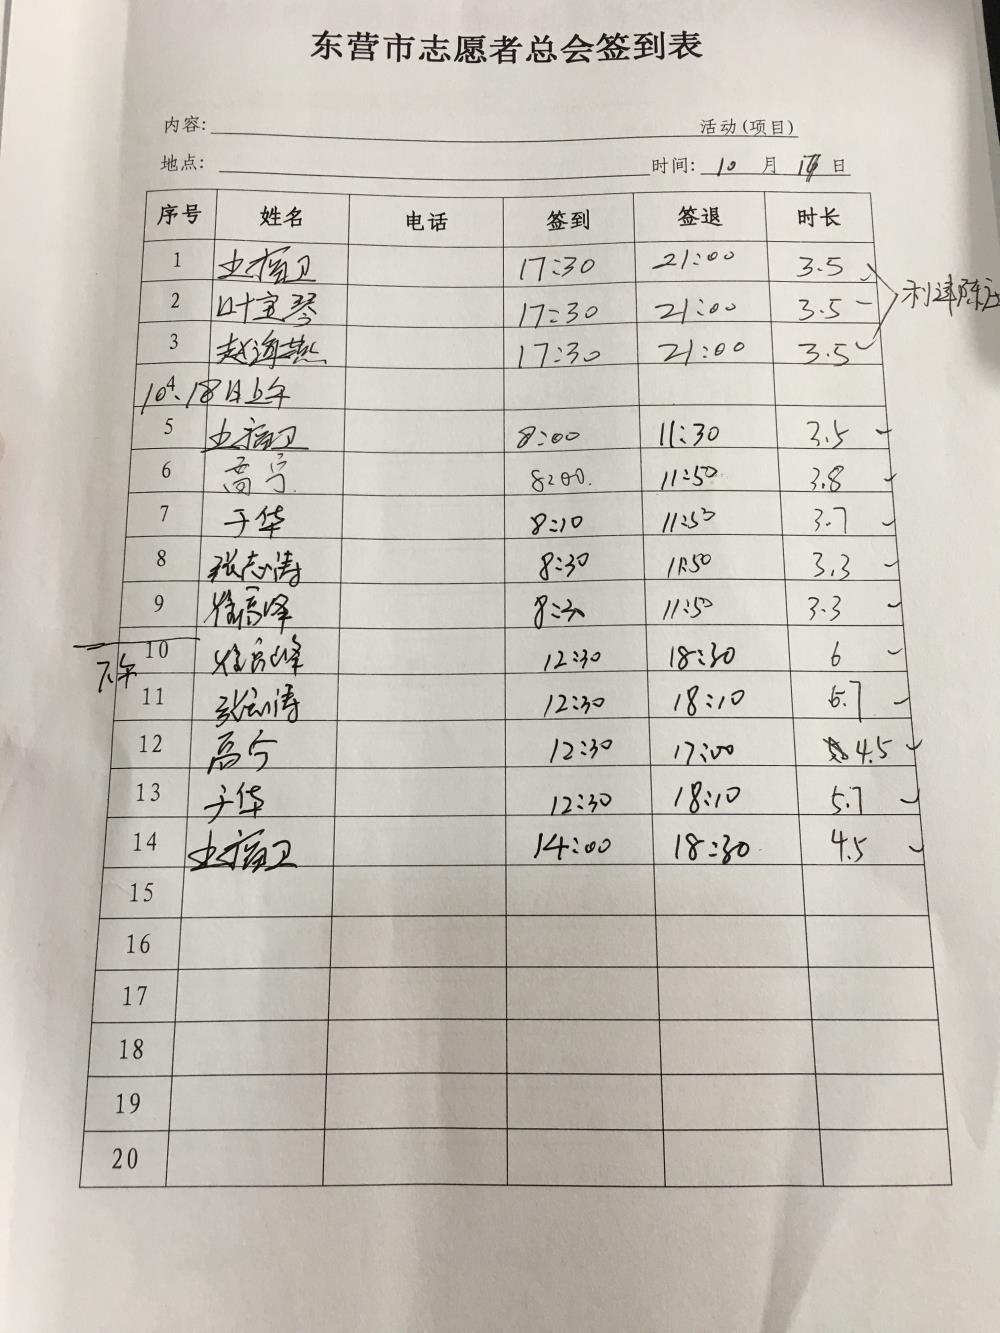 东营市志愿者总会签到表
内容: 活动(项目)
地点: 时间: 10 月 日
序号 姓名 电话 签到 签退 时长
1 17:30 21:00 3.5
2 叶宝琴 17:30 21:00 3.5
3 赵海燕 17:30 21:00 3.5
4 10、18日上午
5 8:00 11:30 3.5
6 高宁 8:00. 11:50 3.8
7 于华 8:10 11:50 3.7
8 张志涛 8:30 11:50 3.3
9 徐高峰 8:30 11:50 3.3
下午
10 徐高峰 12:30 18:30 6
11 张志涛 12:30 18:10 5.7
12 高宁 12:30 17:00 4.5
13 于华 12:30 18:10 5.7
14 14:00 18:30 4.5
15
16
17
18
19
20